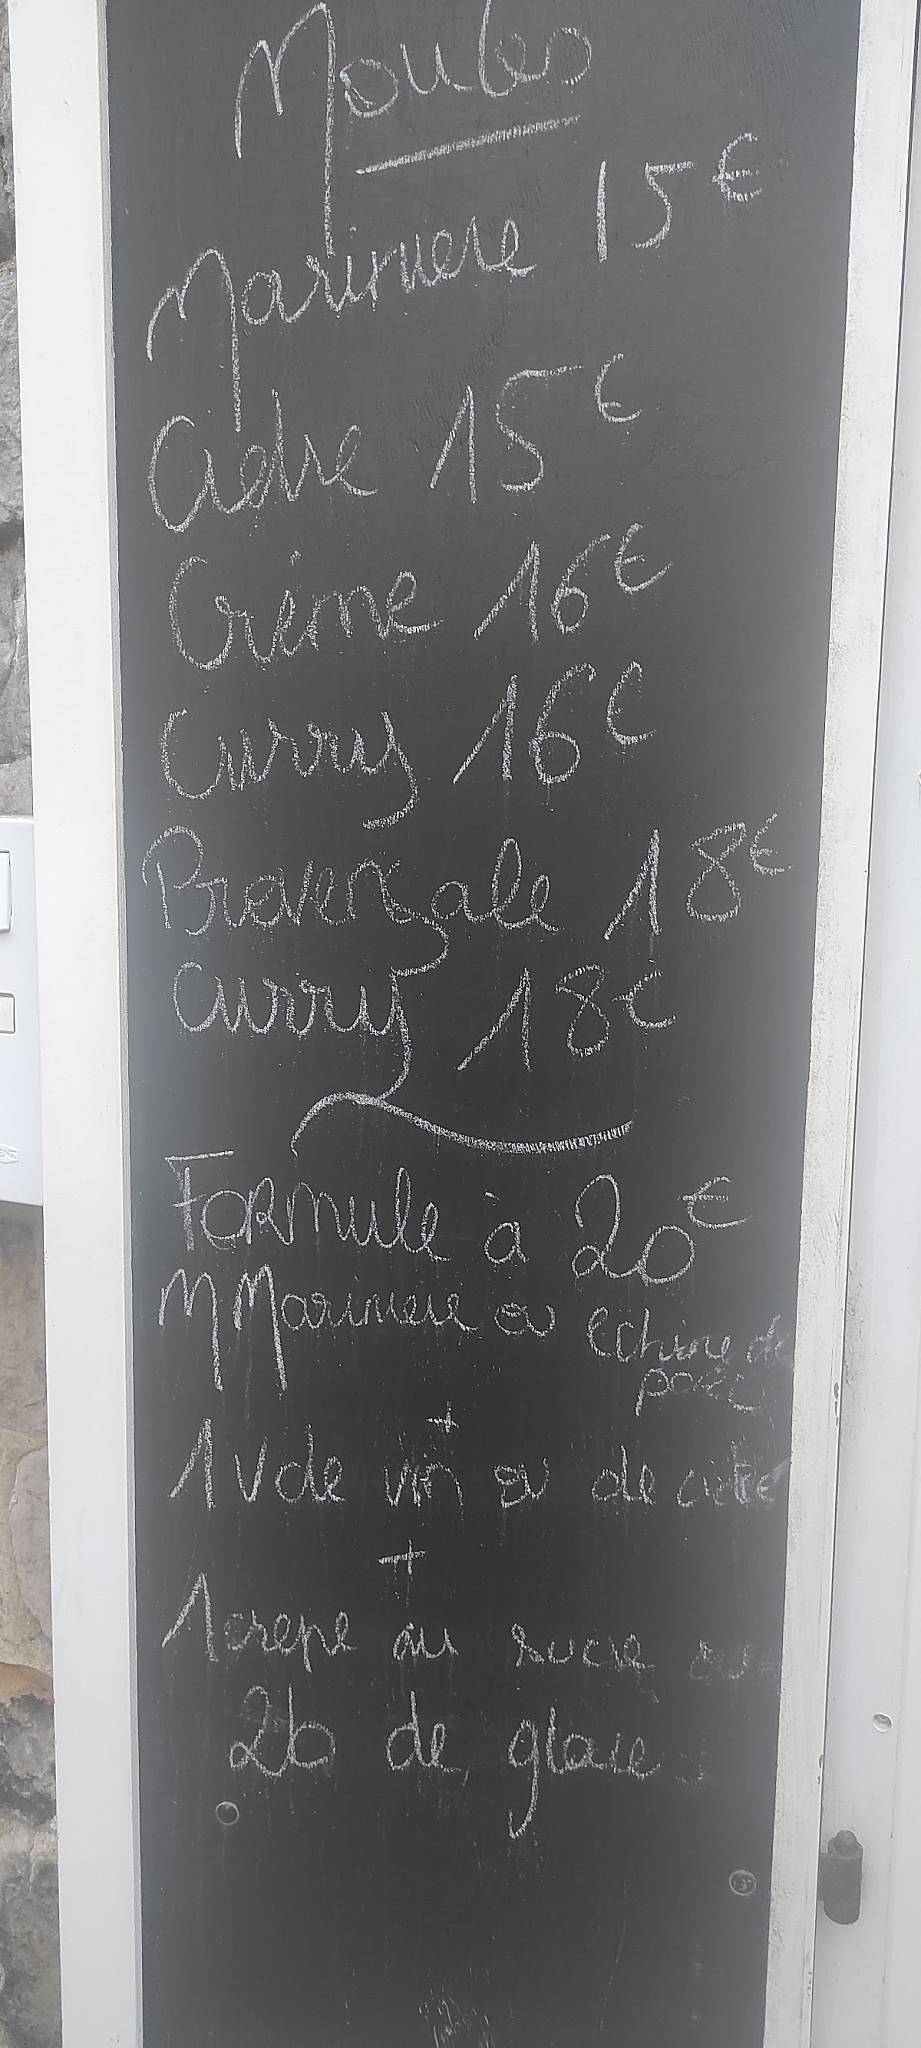 Moules
Marinière 15€
Cidre 15€
Crème 16€
Curry 16€
Provençale 18€
Curry 18€
Formule à 20€
M Marinière ou echine de
porc
+
1 V de vin ou de cidre
+
1 crepe au sucre ou
2b de glace